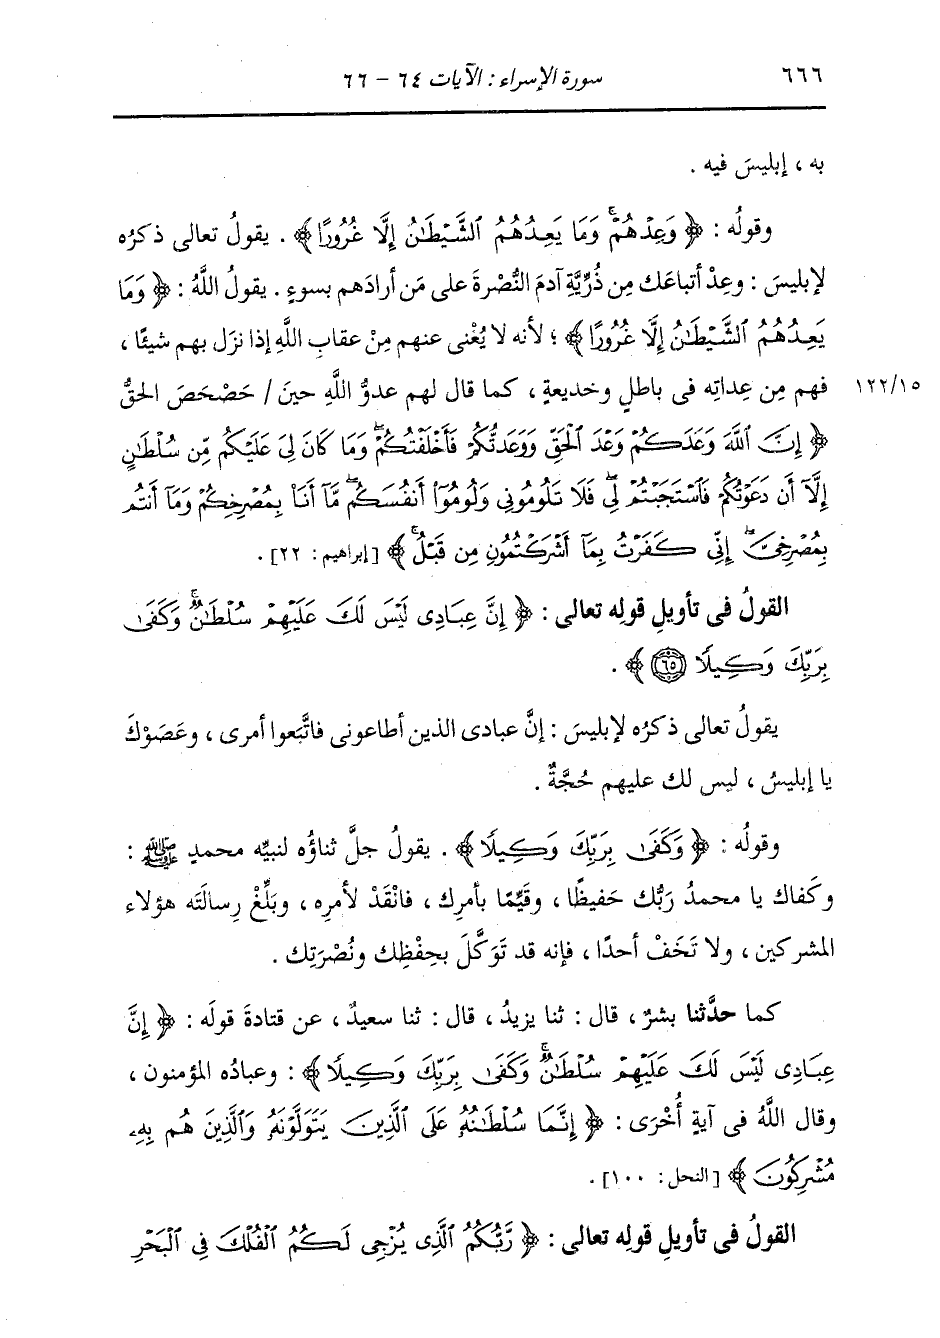 ٦٦٦ سورة الإسراء : الآيات ٦٤ - ٦٦
به ، إبليسَ فيه .
وقولُه : ﴿ وَعِدْهُمْ ۚ وَمَا يَعِدُهُمُ الشَّيْطَٰنُ إِلَّا غُرُورًا ﴾ . يقولُ تعالى ذكرُه
لإبليسَ : وعِدْ أتباعَك مِن ذُرِّيَّةِ آدمَ النُّصْرةَ على مَن أرادَهم بسوءٍ . يقولُ اللَّهُ : ﴿ وَمَا
يَعِدُهُمُ الشَّيْطَٰنُ إِلَّا غُرُورًا ﴾ ؛ لأنه لا يُغْنى عنهم مِنْ عقابِ اللَّهِ إذا نزَل بهم شيئًا ،
فهم مِن عِداتِه فى باطلٍ وخديعةٍ ، كما قال لهم عدوُّ اللَّهِ حينَ / حَصْحَصَ الحقُّ ١٢٢/١٥
﴿ إِنَّ اللَّهَ وَعَدَكُمْ وَعْدَ الْحَقِّ وَوَعَدتُّكُمْ فَأَخْلَفْتُكُمْ ۖ وَمَا كَانَ لِىَ عَلَيْكُم مِّن سُلْطَٰنٍ
إِلَّآ أَن دَعَوْتُكُمْ فَاسْتَجَبْتُمْ لِى ۖ فَلَا تَلُومُونِى وَلُومُوٓا أَنفُسَكُم ۖ مَّآ أَنَا۠ بِمُصْرِخِكُمْ وَمَآ أَنتُم
بِمُصْرِخِىَّ ۖ إِنِّى كَفَرْتُ بِمَآ أَشْرَكْتُمُونِ مِن قَبْلُ ۗ ﴾ [إبراهيم: ٢٢] .
القولُ فى تأويلِ قولِه تعالى : ﴿ إِنَّ عِبَادِى لَيْسَ لَكَ عَلَيْهِمْ سُلْطَٰنٌ ۚ وَكَفَىٰ
بِرَبِّكَ وَكِيلًا ٦٥ ﴾ .
يقولُ تعالى ذكرُه لإبليسَ : إنَّ عبادى الذين أطاعونى فاتَّبَعوا أمرى ، وعَصَوْكَ
يا إبليسُ ، ليس لك عليهم حُجَّةٌ .
وقولُه : ﴿ وَكَفَىٰ بِرَبِّكَ وَكِيلًا ﴾ . يقولُ جلَّ ثناؤُه لنبيِّه محمدٍ ﷺ :
وكَفاك يا محمدُ رَبُّك حَفيظًا ، وقَيِّمًا بأمرِك ، فانْقَدْ لأمرِه ، وبَلِّغْ رِسالَتَه هؤلاء
المشركين ، ولا تَخَفْ أحدًا ، فإنه قد تَوَكَّلَ بحِفْظِك ونُصْرَتِك .
كما حدَّثنا بشرٌ ، قال : ثنا يزيدُ ، قال : ثنا سعيدٌ ، عن قتادةَ قولَه : ﴿ إِنَّ
عِبَادِى لَيْسَ لَكَ عَلَيْهِمْ سُلْطَٰنٌ ۚ وَكَفَىٰ بِرَبِّكَ وَكِيلًا ﴾ : وعبادُه المؤمنون ،
وقال اللَّهُ فى آيةٍ أُخْرَى : ﴿ إِنَّمَا سُلْطَٰنُهُۥ عَلَى الَّذِينَ يَتَوَلَّوْنَهُۥ وَالَّذِينَ هُم بِهِۦ
مُشْرِكُونَ ﴾ [النحل: ١٠٠] .
القولُ فى تأويلِ قولِه تعالى : ﴿ رَّبُّكُمُ الَّذِى يُزْجِى لَكُمُ الْفُلْكَ فِى الْبَحْرِ